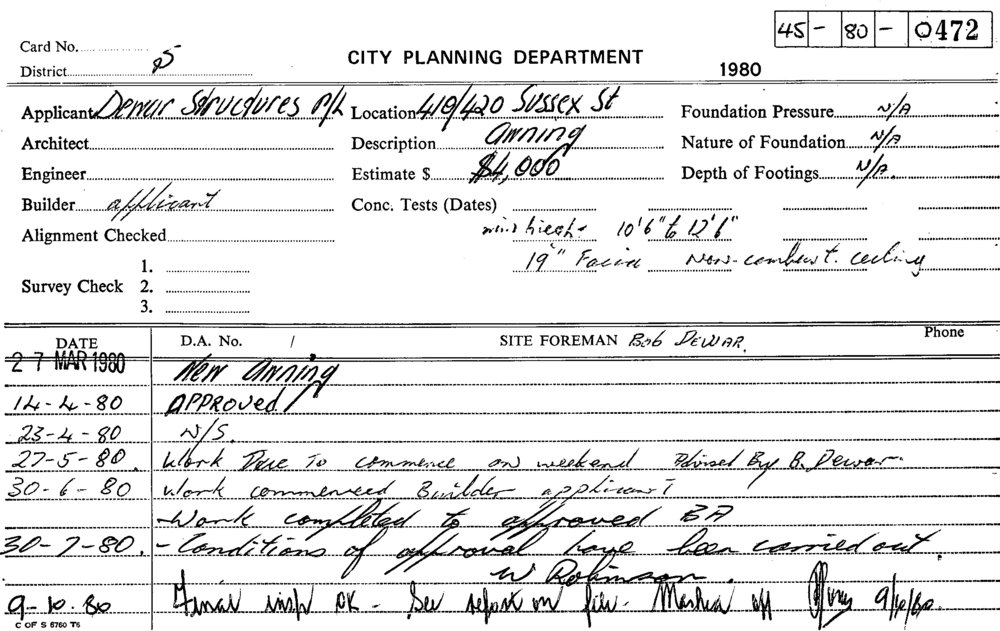 45 - 80 - 0472
Card No. CITY PLANNING DEPARTMENT
District 5 1980
Applicant Dewar Structures P/L Location 419/420 Sussex St Foundation Pressure N/A
Architect Description Awning Nature of Foundation N/A
Engineer Estimate $ $4,000 Depth of Footings N/A.
Builder applicant Conc. Tests (Dates)
Alignment Checked 10'6" to 12'6"
19" Facia Non-combust. ceiling
Survey Check 1.
2.
3.
DATE D.A. No. / SITE FOREMAN Bob DEWAR. Phone
27 MAR 1980 New Awning
14-4-80 APPROVED
23-4-80 N/S.
27-5-80. Work Due To commence on weekend Advised By B. Dewar.
30-6-80 Work commenced Builder applicant
- Work completed to approved BA
30-7-80. - Conditions of approval have been carried out.
W Robinson.
9-10-80 Final insp OK - See report on file. Marked off 9/10/80.
C OF S 6760 T6